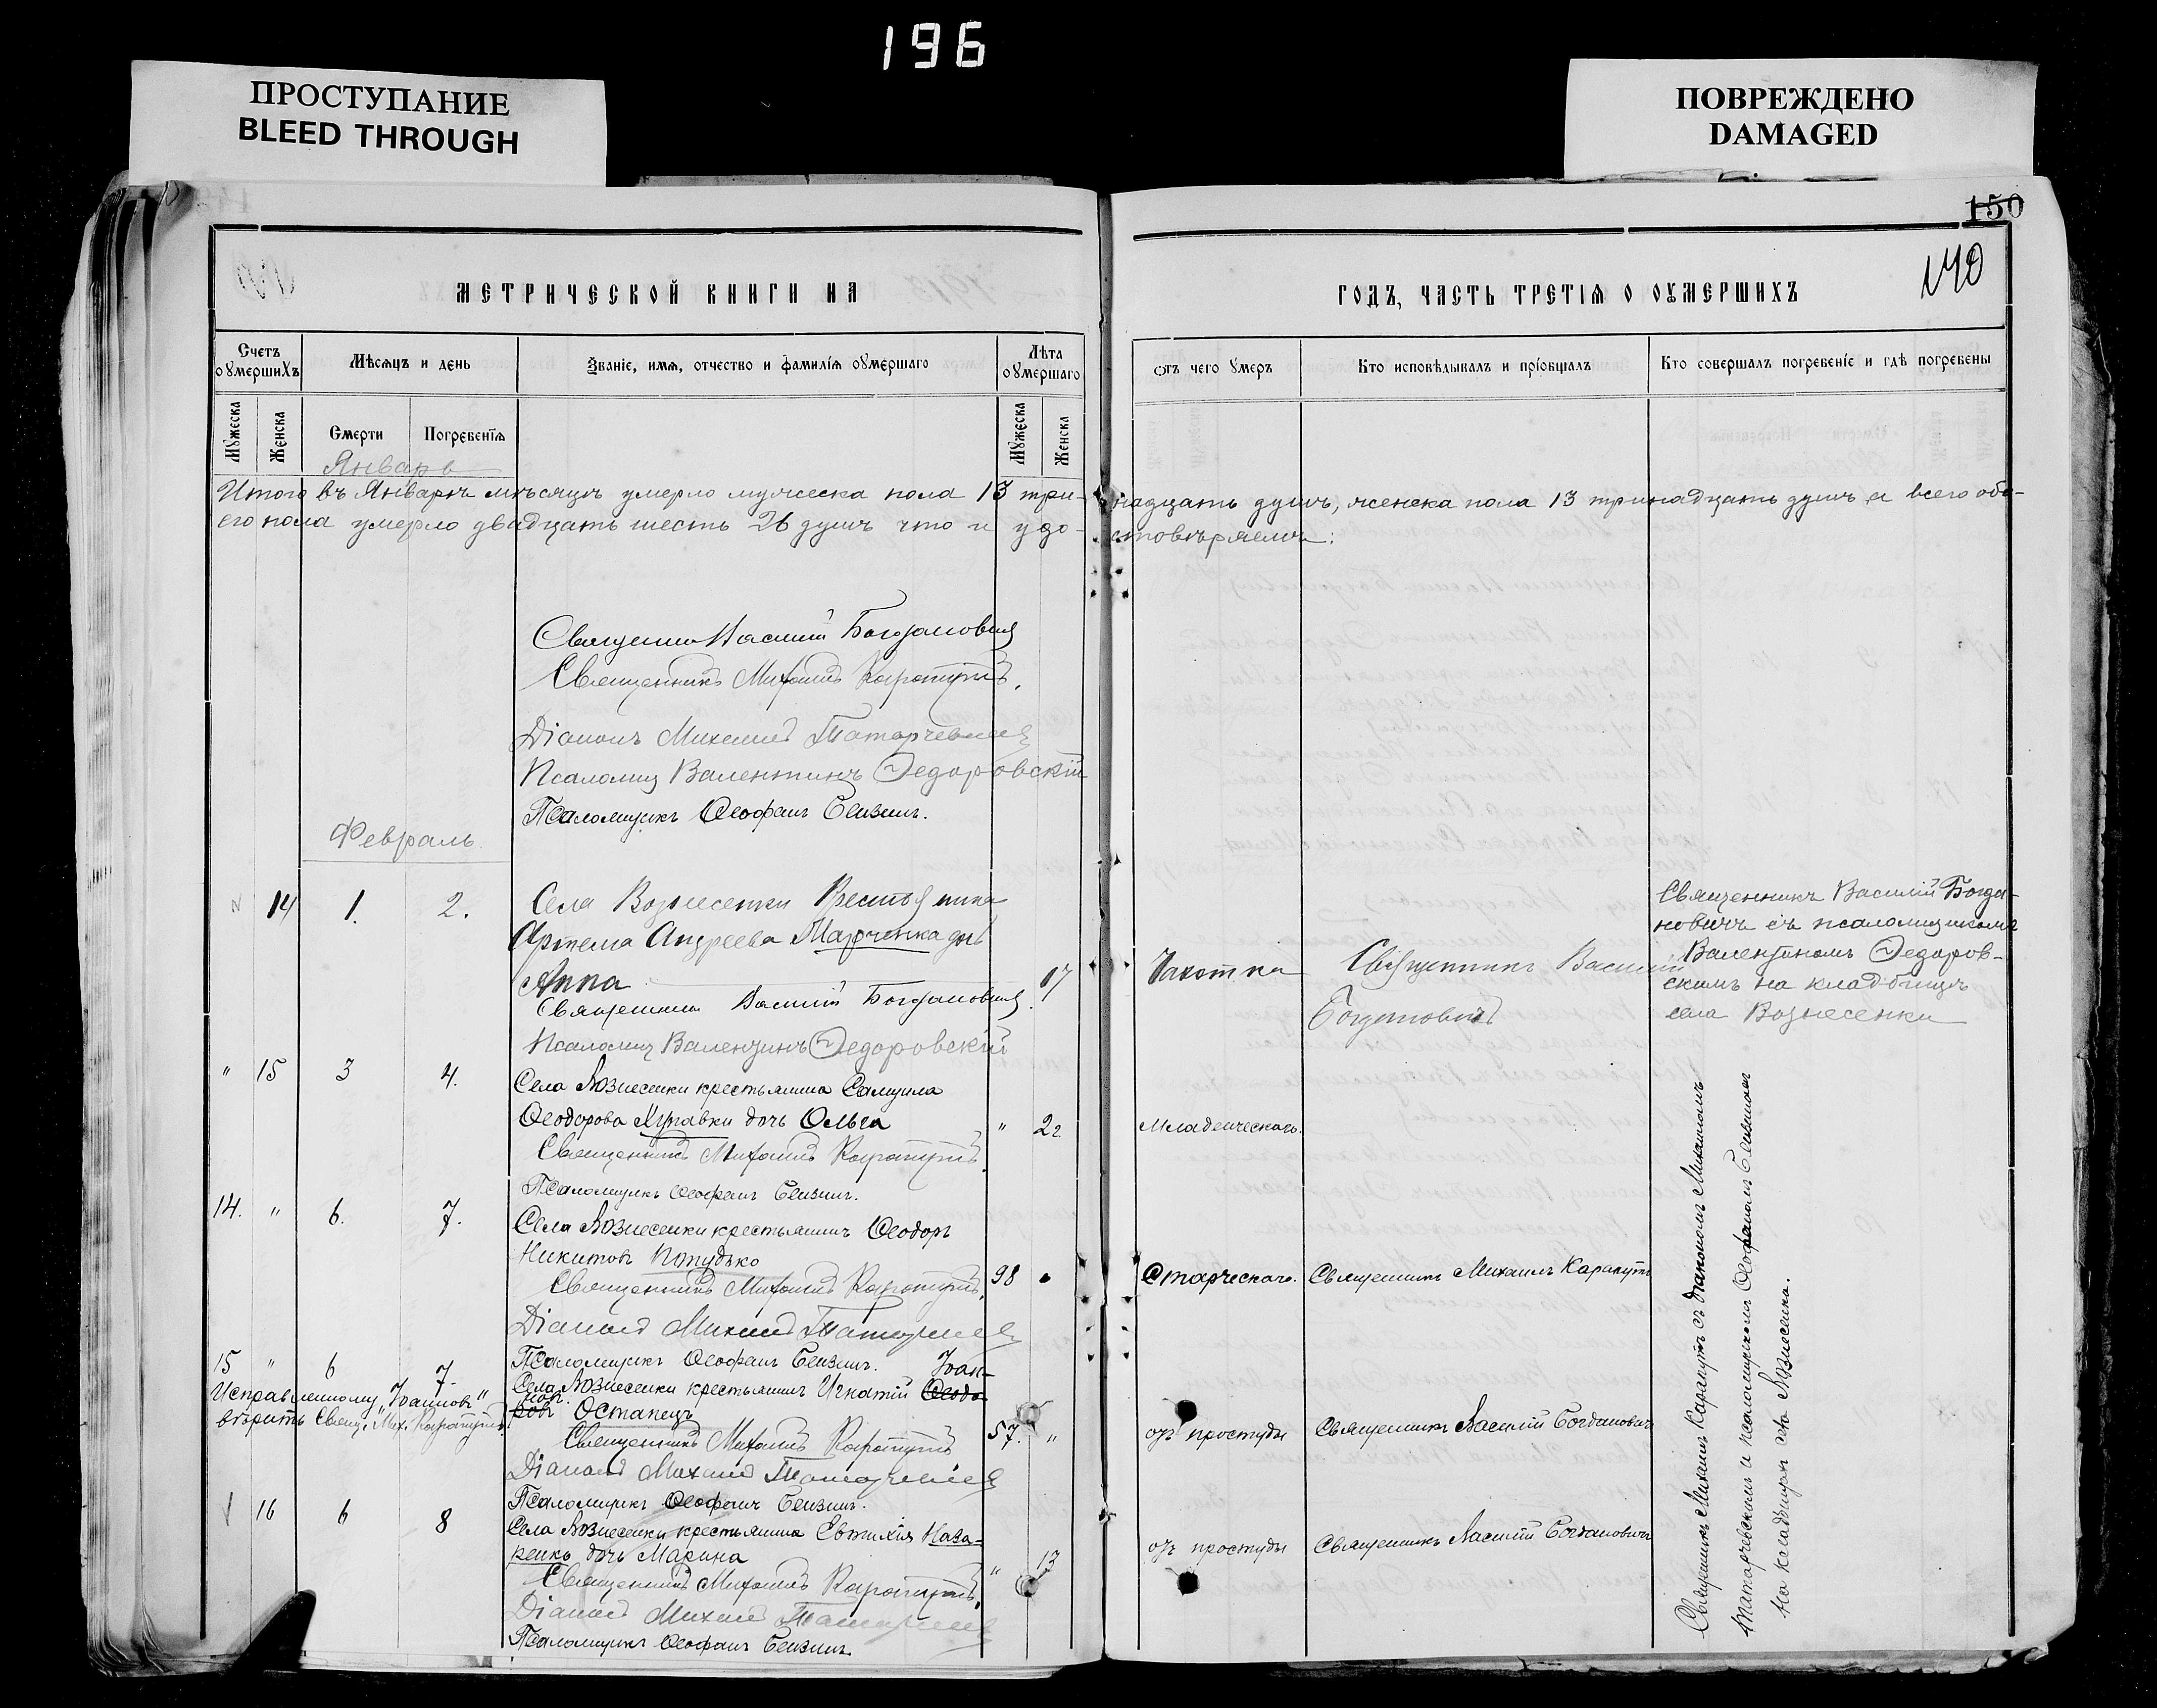 196
ПРОСТУПАНИЕ
BLEED THROUGH
ПОВРЕЖДЕНО
DAMAGED
150
140
МЕТРИЧЕСКОЙ КНИГИ НА
ГОДЪ, ЧАСТЬ ТРЕТІЯ О ОУМЕРШИХЪ
Счетъ оумершихъ
Мѣсяцъ и день
Званіе, имя, отчество и фамилія оумершаго
Лѣта оумершаго
отъ чего умеръ
Кто исповѣдывалъ и пріобщалъ
Кто совершалъ погребеніе и гдѣ погребены
Мужеска
Женска
Смерти
Погребенія
Мужеска
Женска
Январь
Итого въ Январѣ мѣсяцѣ умерло мужеска пола 13 три-надцать душъ, женска пола 13 тринадцать душъ а всего обо-
его пола умерло двадцать шесть 26 душъ что и удо-стовѣряемъ:
Священникъ Василій Богдановичъ
Священникъ Михаилъ Карапутъ.
Діаконъ Михаилъ Татарчевскій
Псаломщ Валентинъ Ѳедоровскій
Псаломщикъ Ѳеофанъ
Февраль
14 1. 2. Села Вознесенки Крестьянина
Артема Андреева Марченка дочь
Анна 17 Чахотка Священникъ Василій
Богдановичъ
Священникъ Василій Богда-
новичъ съ псаломщикомъ
Валентиномъ Ѳедоров-
скимъ на кладбищѣ
села Вознесенки
Священникъ Василій Богдановичъ
Псаломщ Валентинъ Ѳедоровскій
" 15 3 4. Села Вознесенки крестьянина Самуила
Ѳеодорова дочь Ольга " 2г. Младенческаго.
Священникъ Михаилъ Карапутъ.
Псаломщикъ Ѳеофанъ
14. " 6. 7. Села Вознесенки крестьянинъ Ѳеодоръ
Никитовъ Попудько
98 Старческаго. Священникъ Михаилъ Карапутъ
Священникъ Михаилъ Карапутъ.
Діаконъ Михаилъ Татарчевскій
Псаломщикъ Ѳеофанъ
15 " 6 7. Села Вознесенки крестьянинъ Игнатій Ѳеодо-
ровъ Іоан-
новъ Остапецъ
Исправленному "Іоанновъ"
вѣрить Свящ. Мих. Карапутъ.
57. " отъ простуды Священникъ Василій Богдановичъ
Священникъ Михаилъ Карапутъ
Діаконъ Михаилъ Татарчевскій
Псаломщикъ Ѳеофанъ
16 6 8 Села Вознесенки крестьянина Евтихія Наза-
ренко дочь Марина
" 13 отъ простуды Священникъ Василій Богдановичъ
Священникъ Михаилъ Карапутъ.
Діаконъ Михаилъ Татарчевскій
Псаломщикъ Ѳеофанъ
Священникъ Михаилъ Карапутъ съ діакономъ Михаиломъ
Татарчевскимъ и псаломщикомъ Ѳеофаномъ
на кладбищѣ села Вознесенка.